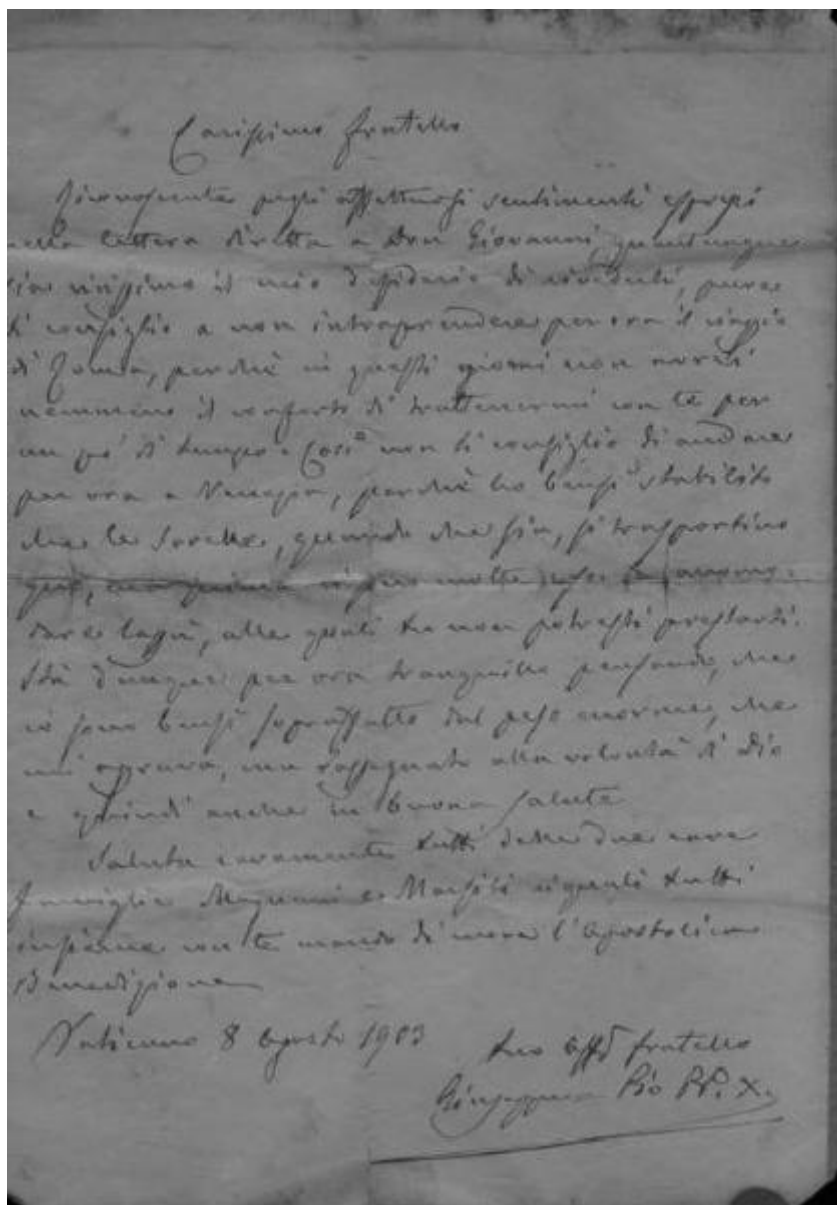 Carissimo fratello
Riconoscente pegli affettuosi sentimenti espressi
nella lettera diretta a Don Giovanni, quantunque
sia vivissimo il mio desiderio di vederti, pure
ti consiglio a non intraprendere per ora il viaggio
di Roma, perchè in questi giorni non avrei
nemmeno il conforto di trattenermi con te per
un po' di tempo. Così non ti consiglio di andare
per ora a Venezia, perchè ho bensì stabilito
che le Sorelle, quando che sia, si trasportino
qui, ma prima vi sono molte cose da accomo-
dare lassù, alle quali tu non potresti prestarti.
Sta dunque per ora tranquillo pensando, che
io sono bensì sopraffatto dal peso enorme, che
mi aggrava, ma rassegnato alla volontà di Dio
e quindi anche in buona salute
Saluta caramente tutti delle due care
famiglie Magnani e Marsili ai quali tutti
insieme con te mando di cuore l'Apostolica
Benedizione
Vaticano 8 Agosto 1903
tuo affo fratello
Giuseppe Pio PP. X.